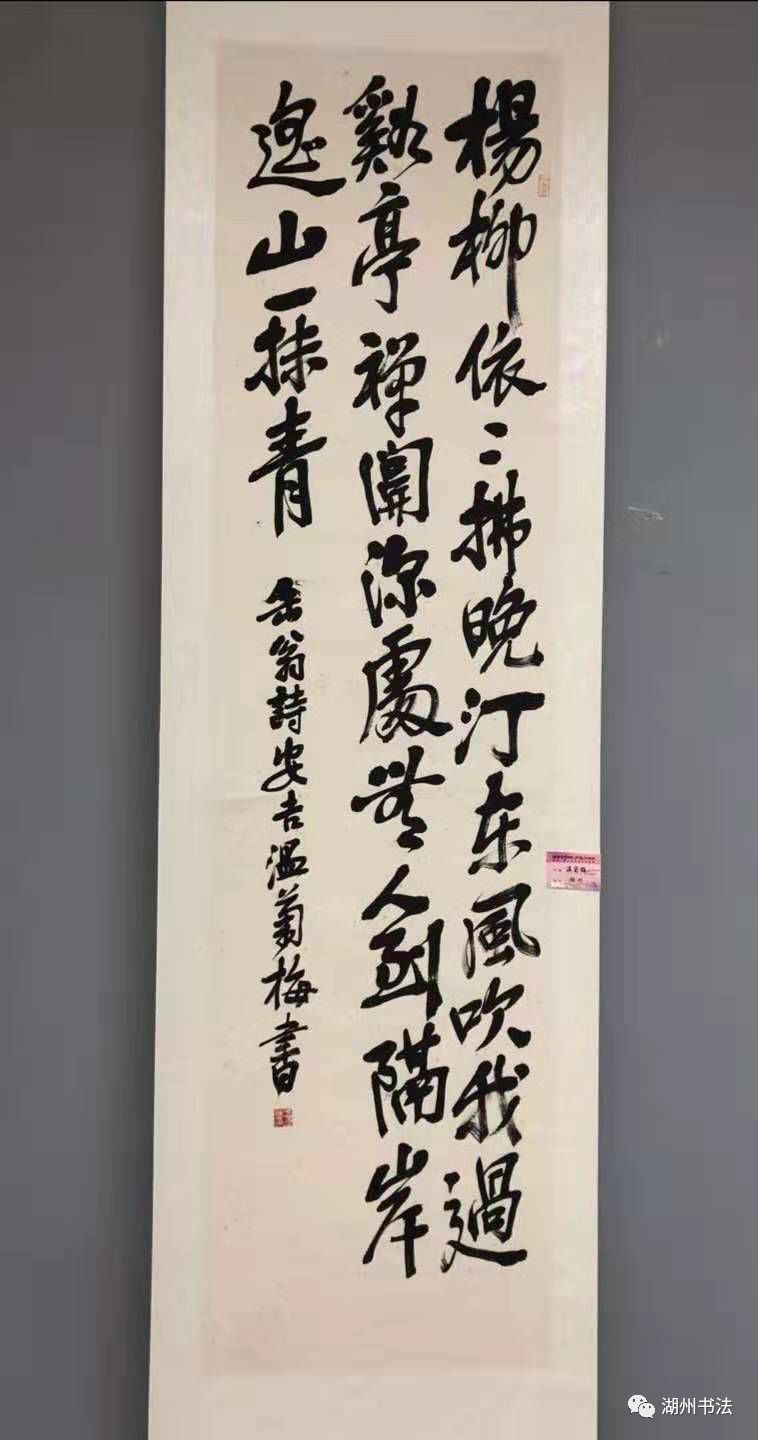 楊柳依〻拂晚汀東風吹我過
谿亭禪關深處無人到隔岸
遠山一抹青
缶翁詩安吉溫菊梅書
湖州书法